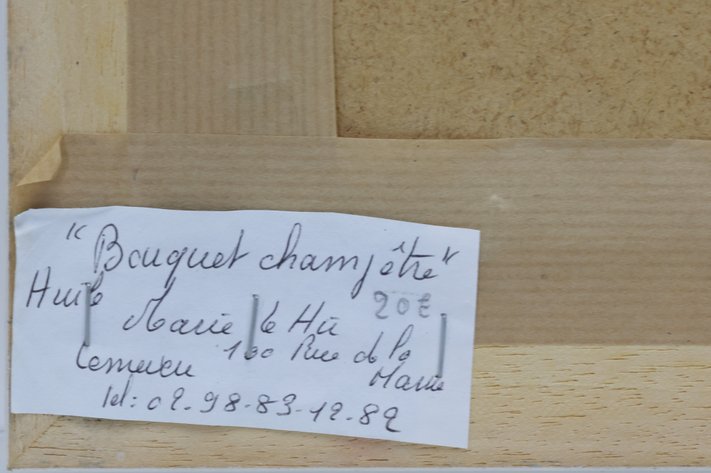 "Bouquet champêtre"
Huile 20€
Marie le Hir
100 Rue de la
Mairie
Tel: 02-98-83-12-82